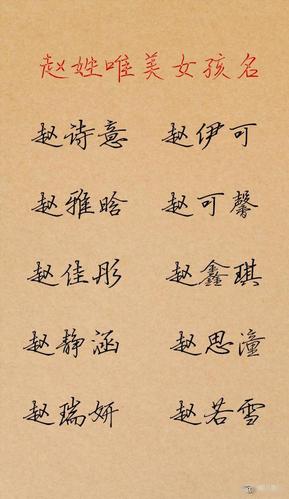 赵姓唯美女孩名
赵诗意 赵伊可
赵雅晗 赵可馨
赵佳彤 赵鑫琪
赵静涵 赵思潼
赵瑞妍 赵若雪